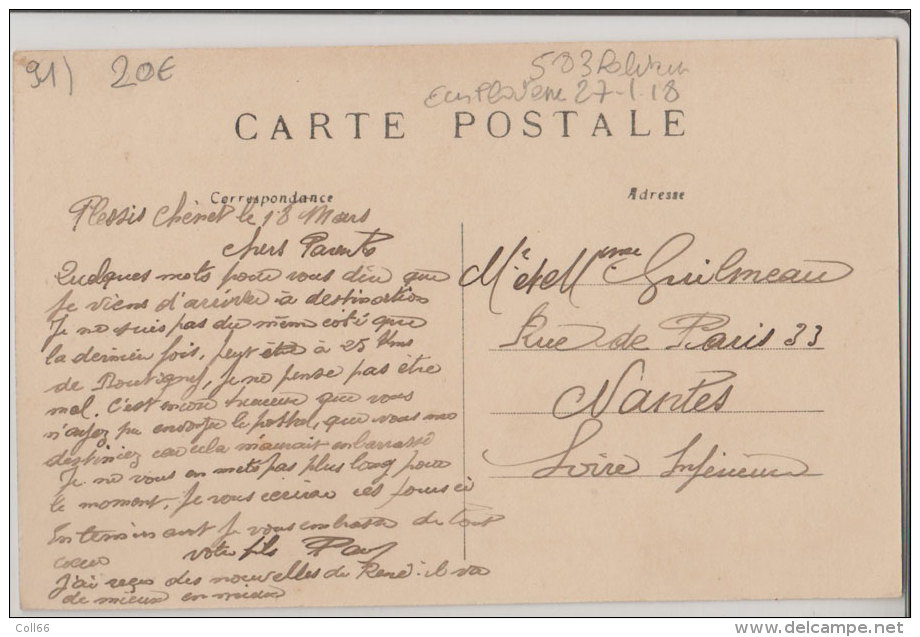 91) 20€
27-1-18
CARTE POSTALE
Correspondance
Adresse
Plessis Chénet le 18 Mars
chers Parents
Quelques mots pour vous dire que
je viens d'arriver à destination
Je ne suis pas du même côté que
la dernière fois, peut être à 25 Kms
de Boutigny, je ne pense pas être
mal. C'est encore heureux que vous
n'ayez pu envoyer le que vous me
destiniez car cela m'aurait embarrassé
Je ne vous en mets pas plus long pour
le moment, je vous écrirai ces jours ci
En terminant je vous embrasse de tout
coeur votre fils Paul
J'ai reçu des nouvelles de René : il va
de mieux en mieux
Mr et Mme Guilmeau
Rue de Paris 33
Nantes
Loire Inférieure
Coll66
delcampe.net